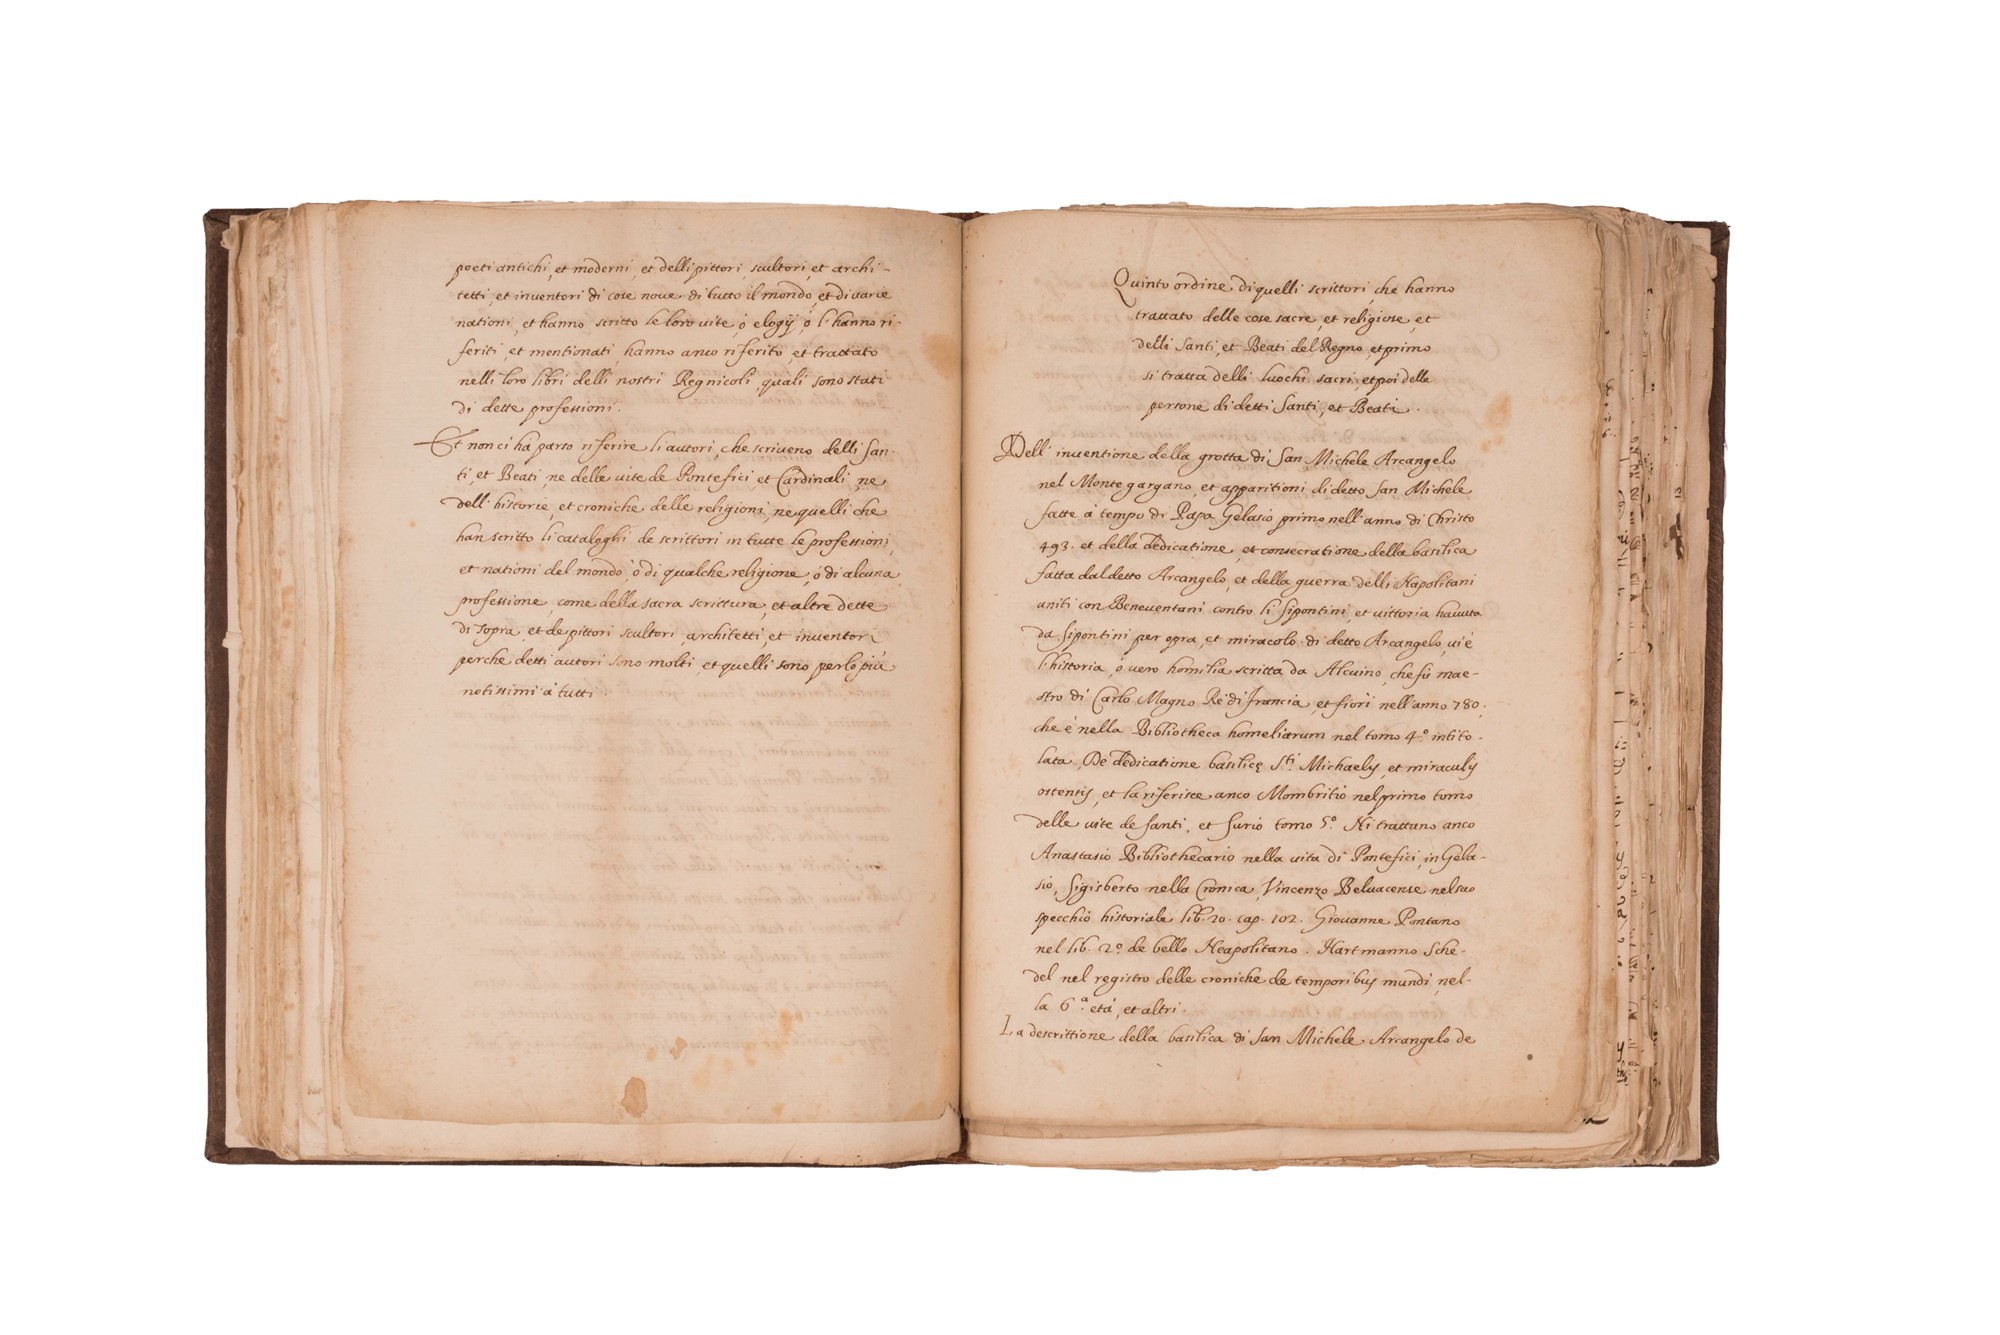 poeti antichi, et moderni, et delli pittori, scultori, et archi-
tetti, et inventori di cose nove di tutto il mondo, et di varie
nationi, et hanno scritto le loro vite, ó elogij, ó l'hanno ri-
feriti, et mentionati, hanno anco riferito, et trattato
nelli loro libri delli nostri Regnicoli, quali sono stati
di dette professioni.
Et non ci há parso riferire li autori, che scriveno delli San-
ti, et Beati, ne delle vite de Pontefici, et Cardinali, ne
dell'historie, et croniche delle religioni, ne quelli che
han scritto li cataloghi de scrittori in tutte le professioni,
et nationi del mondo, ó di qualche religione, ó di alcuna
professione, come della sacra scrittura, et altre dette
di sopra, et de pittori scultori, architetti, et inventori
perche detti autori sono molti, et quelli sono per lo piú
notissimi á tutti.
Quinto ordine di quelli scrittori, che hanno
trattato delle cose sacre, et religiose, et
delli Santi, et Beati del Regno, et primo
si tratta delli luochi sacri, et poi delle
persone di detti Santi, et Beati.
Dell'inventione della grotta di San Michele Arcangelo
nel Monte gargano, et apparitioni di detto San Michele
fatte á tempo di Papa Gelasio primo nell'anno di Christo
493. et della dedicatione, et consecratione della basilica
fatta dal detto Arcangelo, et della guerra delli Napolitani
uniti con Beneventani contro li Sipontini, et vittoria havuta
da Sipontini per opra, et miracolo di detto Arcangelo, vi é
l'historia, ó vero homilia scritta da Alcuino, che fú mae-
stro di Carlo Magno Ré di Francia, et fiorì nell'anno 780.
che é nella Bibliotheca homeliarum nel tomo 4.º intito-
lata, De dedicatione basilicę S.ti Michaelis, et miraculis
ostensis, et la riferisce anco Mombritio nel primo tomo
delle vite de Santi, et Surio tomo 5.º Ni trattano anco
Anastasio Bibliothecario nella vita di Pontefici, in Gela-
sio, Sigisberto nella Cronica, Vincenzo Beluacense nel suo
specchio historiale lib. 20. cap. 102. Giovanne Pontano
nel lib. 2.º de bello Neapolitano. Hartmanno Sche-
del nel registro delle croniche de temporibus mundi, nel-
la 6.ª etá, et altri.
La descrittione della basilica di San Michele Arcangelo de